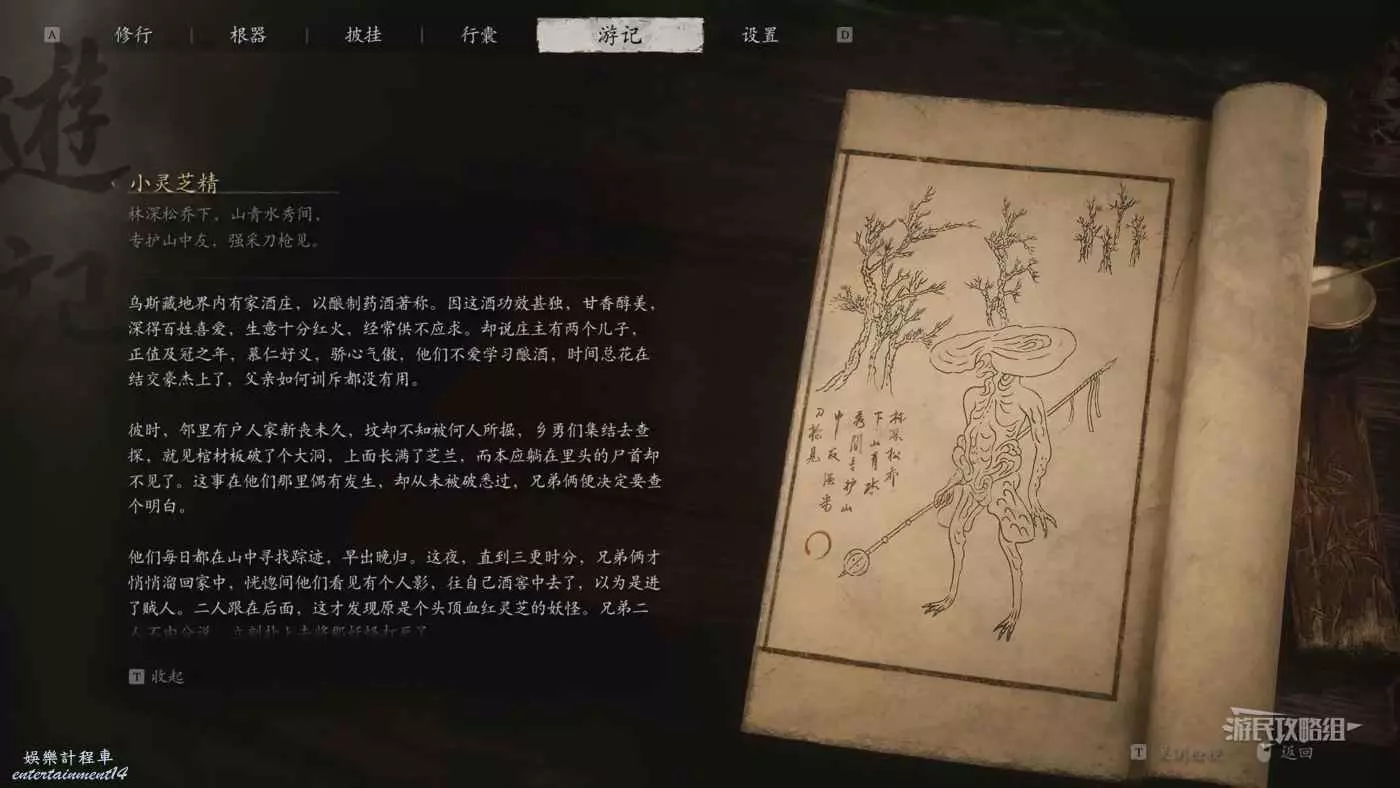 A 修行 根器 披挂 行囊 游记 设置 D
遊記
小灵芝精
林深松乔下，山青水秀间，
专护山中友，强采刀枪见。
乌斯藏地界内有家酒庄，以酿制药酒著称。因这酒功效甚独，甘香醇美，
深得百姓喜爱，生意十分红火，经常供不应求。却说庄主有两个儿子，
正值及冠之年，慕仁好义，骄心气傲，他们不爱学习酿酒，时间总花在
结交豪杰上了，父亲如何训斥都没有用。
彼时，邻里有户人家新丧未久，坟却不知被何人所掘，乡勇们集结去查
探，就见棺材板破了个大洞，上面长满了芝兰，而本应躺在里头的尸首却
不见了。这事在他们那里偶有发生，却从未被破悉过，兄弟俩便决定要查
个明白。
他们每日都在山中寻找踪迹，早出晚归。这夜，直到三更时分，兄弟俩才
悄悄溜回家中，恍惚间他们看见有个人影，往自己酒窖中去了，以为是进
了贼人。二人跟在后面，这才发现原是个头顶血红灵芝的妖怪。兄弟二
人不由分说，立刻扑上去将那妖怪打死了
T 收起
林深松乔
下山青水
秀间专护山
中友强采
刀枪见
游民攻略组
T
返回
娛樂計程車
entertainment14